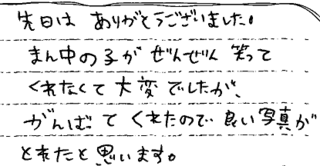 先日は ありがとうございました。
まん中の子が ぜんぜん 笑って
くれたくて 大変でしたが、
がんばて くれたので 良い写真が
とれたと思います。